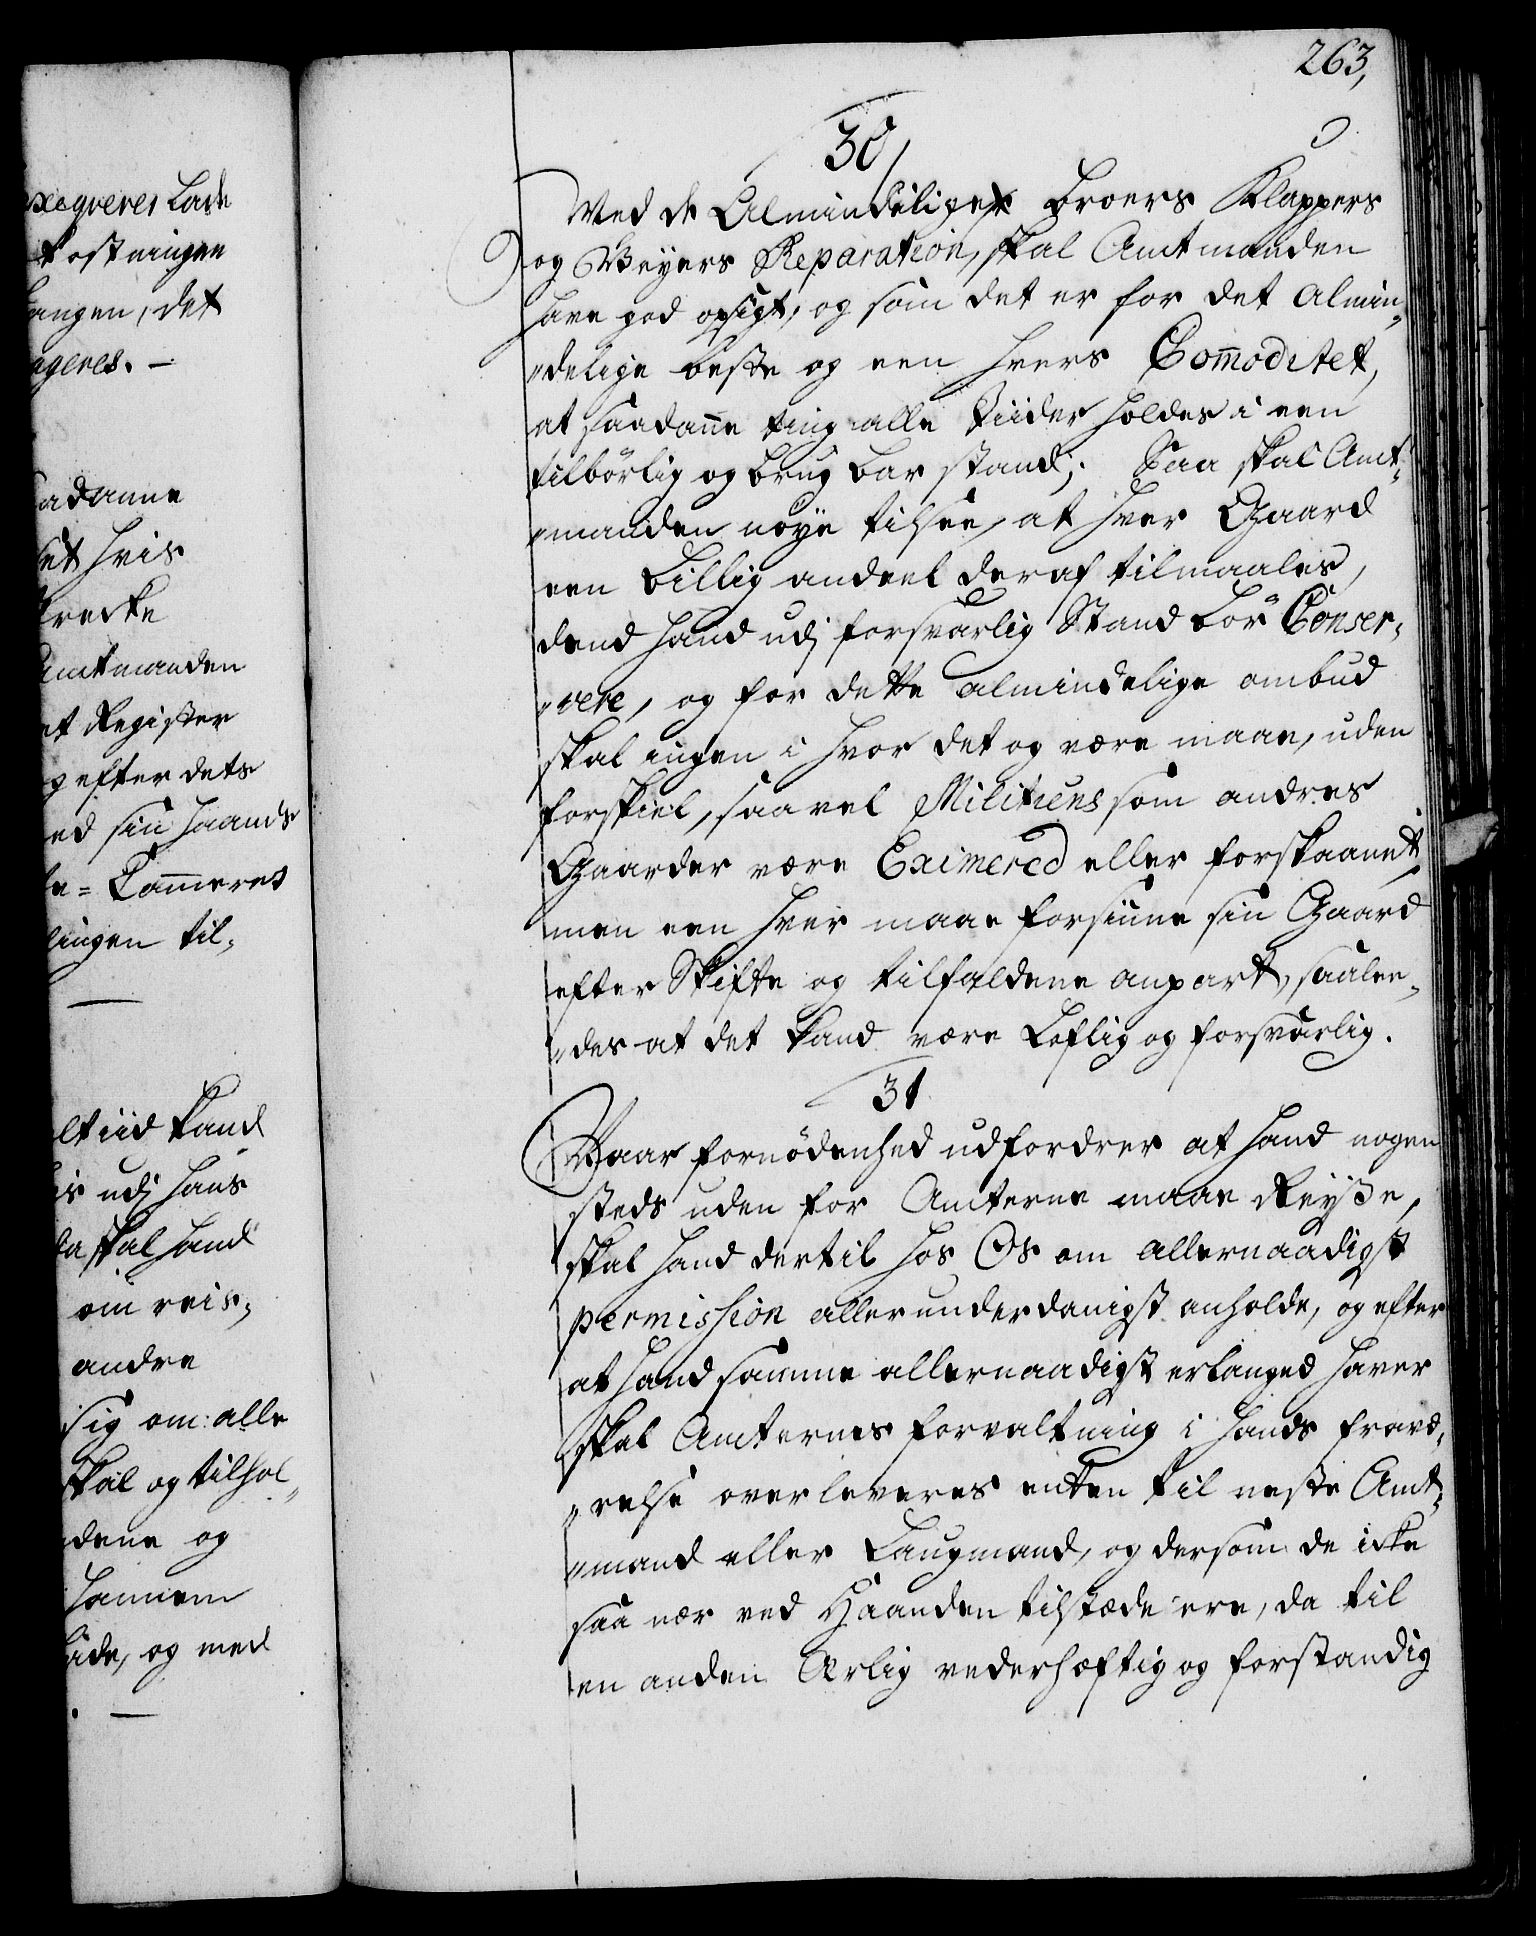 xeqverer Lade
kostningen
langen, det
ageres. –
adanne
et hvis
trecke
Amtmanden
et Register
g efter dets
ed sin haands
te= Cam̄eret
lingen til,
ltiid kand
is udj hans
da skal hand
om reis,
andre
sig om alle
skal og tilhol„
dene og
hannem
aade, og med
263,
30
Ved de Almindelige Broers Klappers
og Veyers Reparation, skal Amtmanden
have god opsigt, og som det er for det Almin„
„delige beste og een hvers Com̄oditet,
at saadan̄e ting alle Tiider holdes i een
tilbörlig og brugbar stand; Saa skal Amt„
„manden nöye tilsee, at hver Gaard
een billig andeel deraf tilmaales,
dend hand udj forsvarlig Stand bör Conser„
„vere, og for dette almindelige ombud
skal ingen i hvor det og være maae, uden
forskiel, saavel Militiens som andres
Gaarder være Eximered eller forskaanet,
men een hver maae forsiune sin Gaard
efter Skifte og tilfaldene anpart, saalee„
„des at det kand være Loflig og forsvarlig.
31
Naar fornödenhed udfordrer at hand nogen
steds uden for Amterne maae Reyße,
skal hand dertil hos Os om allernaadigst
permission allerunderdanigst anholde, og efter
at hand samme allernaadigst erlanged haver
skal Amternes forvaltning i hands fravæ„
„relse overleveres enten til neste Amt„
„mand eller Laugmand, og dersom de icke
saa nær ved Haanden tilstæde ere, da til
en anden Ærlig vederhæftig og forstandig